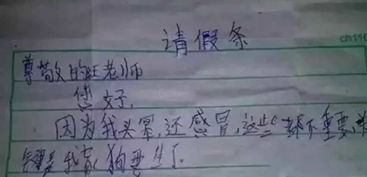 请假条
尊敬的旺老师
您好,
因为我头晕,还感冒,这些都不重要,
我家狗要生了.